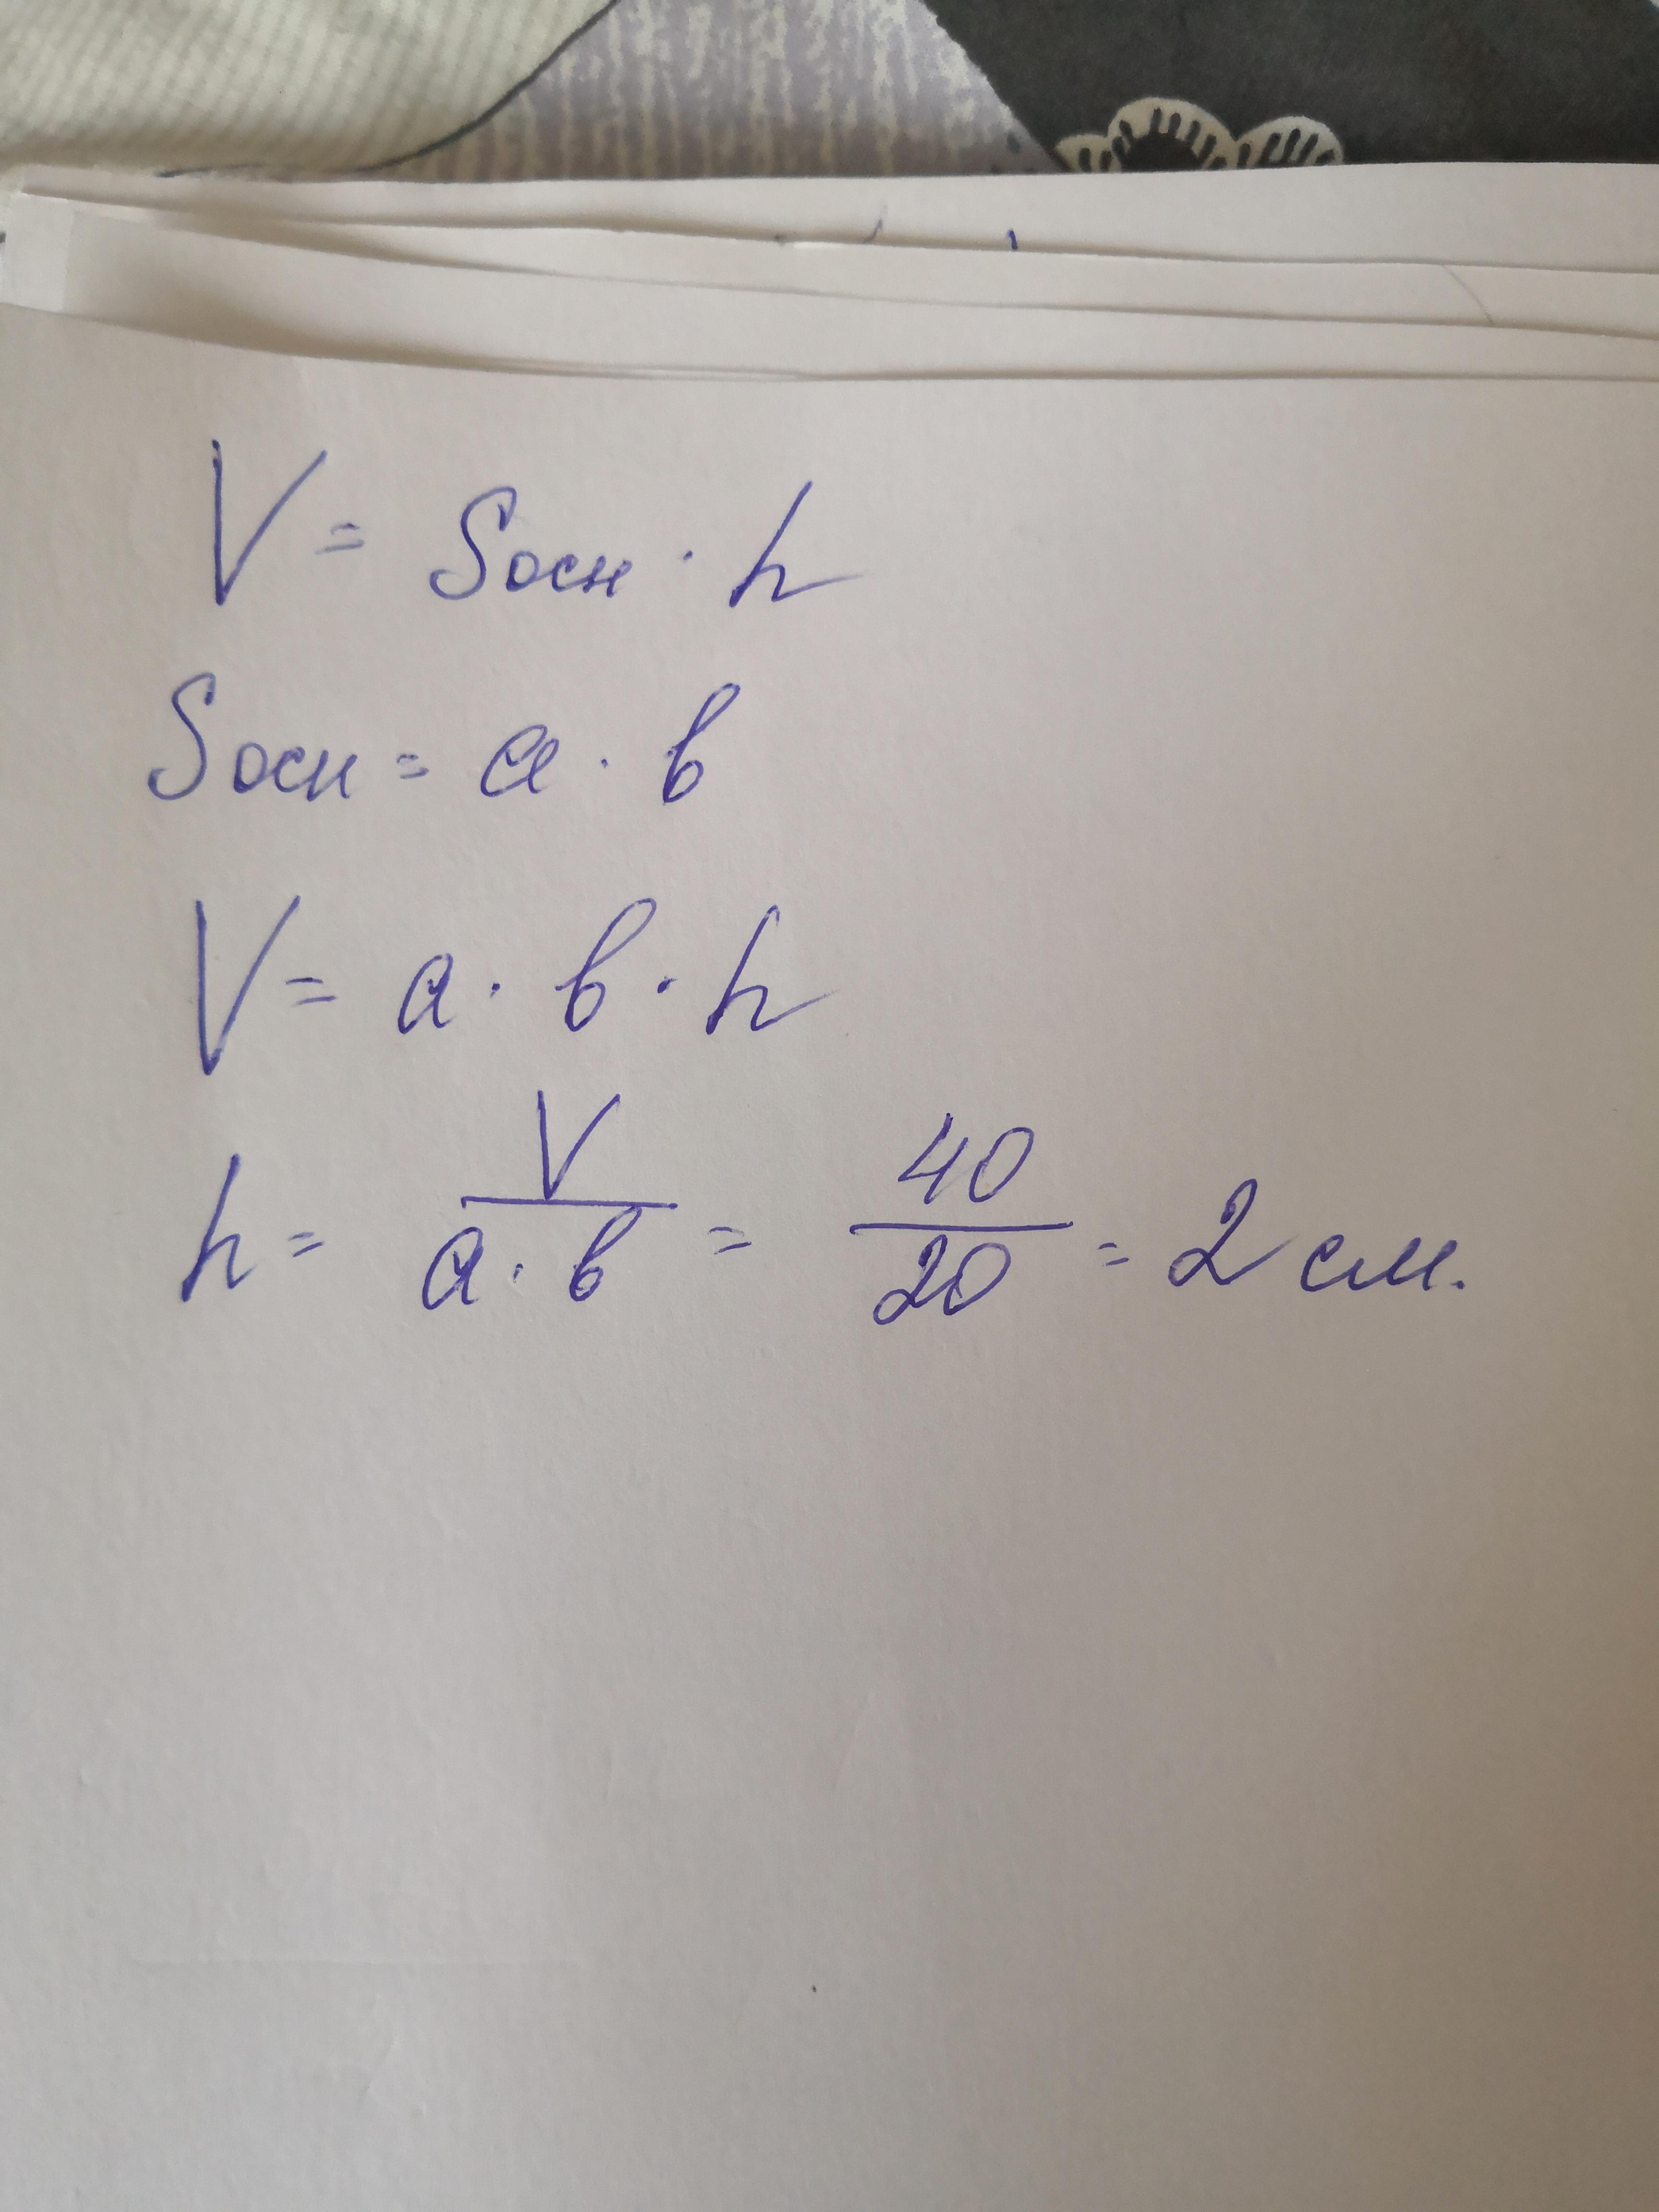 V = Sосн · h
Sосн = a · в
V = a · в · h
h = V / a · в = 40 / 20 = 2 см.